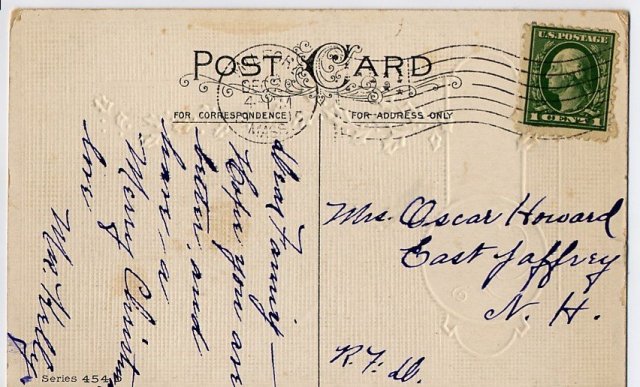 POST CARD
FOR CORRESPONDENCE
FOR ADDRESS ONLY
U.S. POSTAGE
1 CENT 1
MASS
Dear
Hope you are
better and
have a
Merry Christm
love
Mrs.
Mrs. Oscar Howard
East Jaffrey
N. H.
R. F. D.
Series 454